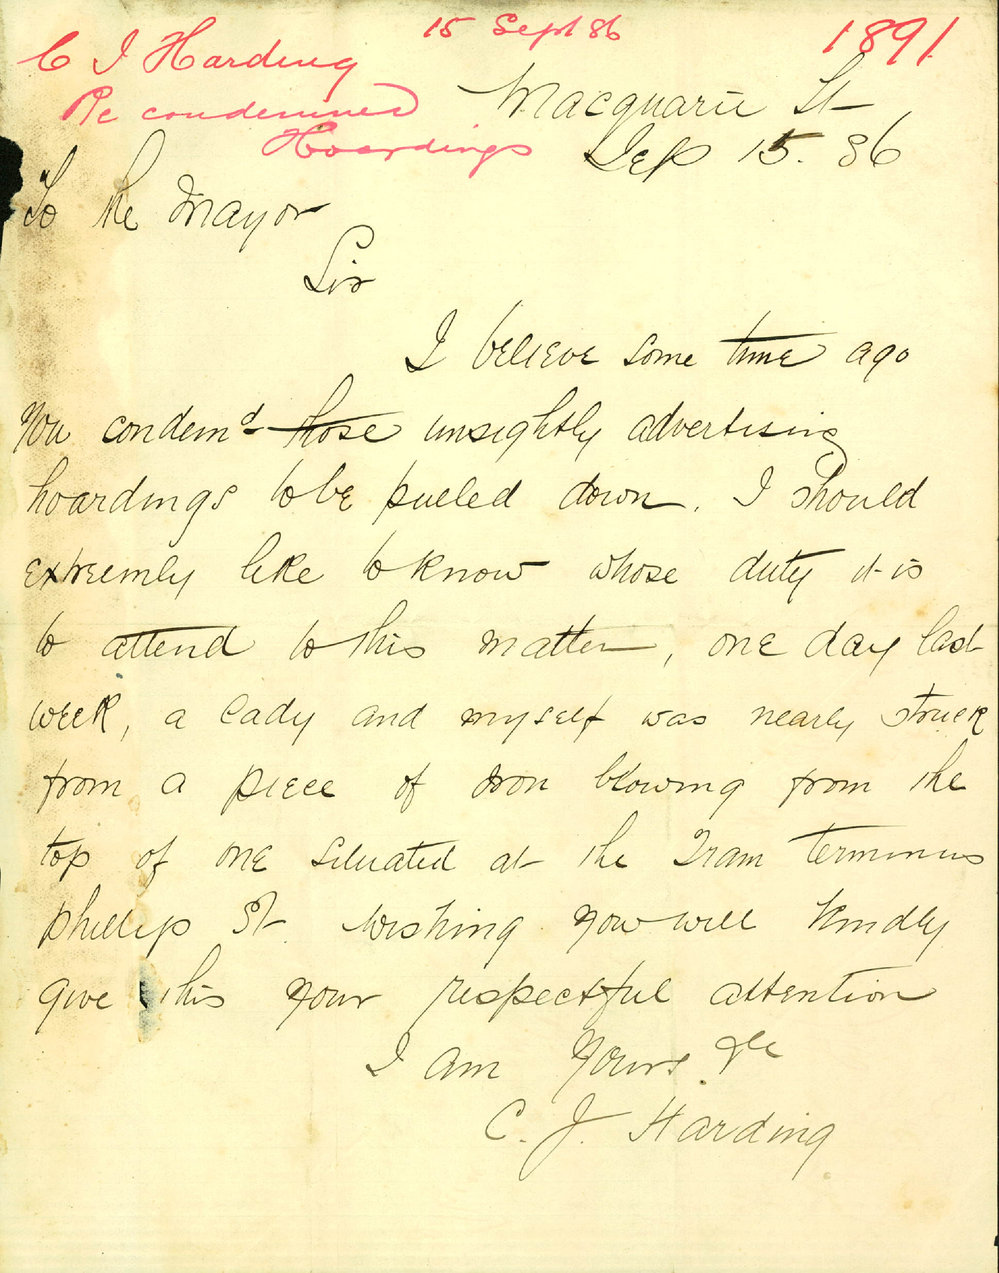 15 Sept 86
1891
C J Harding
Re condemned
Hoardings
Macquarie St
Sep 15. 86
To the Mayor
Sir
I believe some time ago
you condemd those unsightly advertising
hoardings to be pulled down. I should
extreemly like to know whose duty it is
to attend to this matter, one day last
week, a lady and myself was nearly struck
from a piece of Iron blowing from the
top of one situated at the Tram terminus
phillip St. Wishing you will kindly
give this your respectful attention
I am Yours &c
C. J. Harding